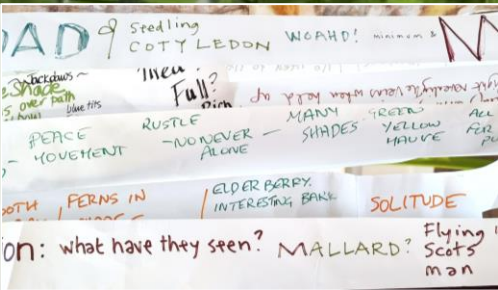 DAD Seedling
COTYLEDON
WOAHD! minimum & M
Jackdaws ~
Shade
s over path
blue tits
Then
Full?
Rich
PEACE
- MOVEMENT
RUSTLE
-NO NEVER
ALONE
- MANY
SHADES
GREEN
YELLOW
MAUVE
ALL
FOR
PU
OOTH / FERNS IN
ELDERBERRY.
INTERESTING BANK
SOLITUDE
on: what have they seen? MALLARD?
Flying
Scots
man